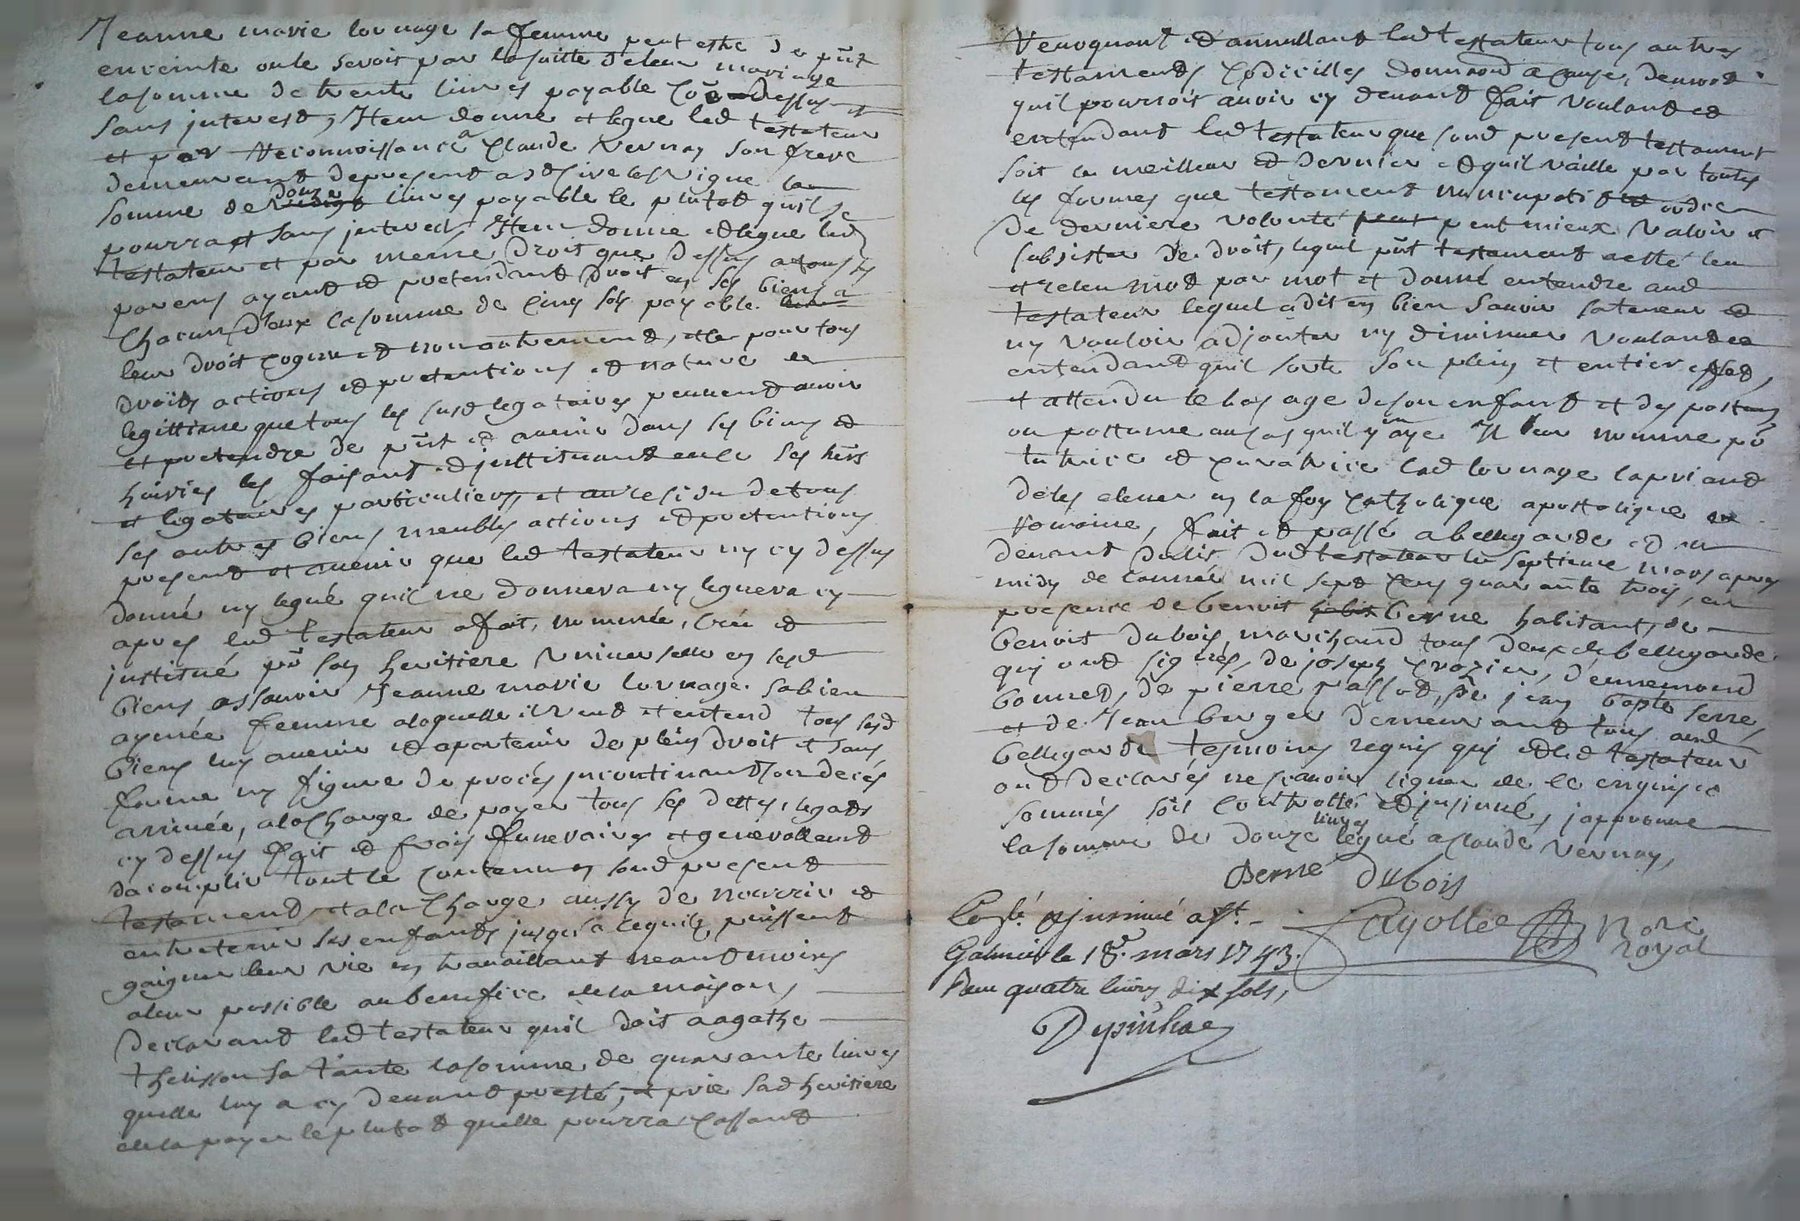 Jeanne marie lornage sa femme peut estre de pnt
enceinte ou le seroit par la suitte de leur mariage
la somme de trente livres payable co'e dessus et
sans interest, Item donne et legue led testateur
et par Reconnoissance a Claude Vernay son frere
demeurant de present a st
somme de douze livres payable le plutot quil se
pourra et sans interest, Item donne et legue led
testateur et par meme droit que dessus a tous ses
parens ayant et pretendant droit en ses biens a
Chacun d'eux la somme de cinq sols payable
leur droit cognu et non autrement, et ce pour tous
droits actions et pretentions et nature de
legittime que tous les susd legataires peuvent avoir
et pretendre de pnt et avenir dans ses biens et
hoiries les faisant et instituant en ce ses hers
et legataires particuliers, et au residu de tous
ses autres biens meubles actions et pretentions
present et avenir que led testateur ny cy dessus
donné ny legué quil ne donnera ny leguera cy
apres led testateur a fait, nommée, créé et
institué po' son heritiere universelle en sesd
biens assavoir Jeanne marie lornage sa bien
aymée femme a laquelle il veut et entend tous sesd
biens luy avenir et apartenir de plein droit et sans
forme ny figure de procés incontinent son decés
arrivée, a la Charge de payer tous ses dettes, legats
cy dessus fait et frais funeraires et generallement
dacomplir tout le contenu en sond present
testament et a la Charge aussy de nourrir et
entretenir ses enfants jusqu'a ce quils puissent
gaigner leur vie en travaillant neantmoins
a leur possible au benefice de la maison,
Declarant led testateur quil doit a agathe
thelisson sa tante la somme de quarante livres
quelle luy a cy devant presté, et prie sad heritiere
de la payer le plutot quelle pourra Cassant
Revoquant et annullant led testateur tous autres
testaments Codicilles donnaõ a cause de mort
quil pourroit avoir cy devant fait voulant et
entendant led testateur que sond present testament
soit le meilleur et dernier et quil vaille par toutes
les formes que testament nuncupatif et ordre
De derniere volonté peut mieux valoir et
subsister de droit, lequel pnt testament a esté leu
et releu mot par mot et donné entendre aud
testateur lequel a dit en bien sçavoir sa teneur et
ny vouloir adjouter ny diminuer voulant et
entendant quil sorte son plein et entier effet,
et attendu le bas age de son enfant et des postumes
ou postume au cas quil y en aye Il leur nomme po'
tutrice et curatrice lad lornage la priant
de les elever en la foy catholique apostolique
romaine, fait et passé a bellegarde et au
devant du lit dud testateur le septieme mars apres
midy de l'année mil sept cens quarante trois, en
presence de benoit berne habitant, de
benoit dubois marchand tous deux de bellegarde
qui ont signés, de joseph crozier, d'ennemond
bonnet, de pierre passot, de jean bapte serre,
et de Jean berger demeurant tous aud
bellegarde tesmoins requis qui et led testateur
ont declarés ne scavoir signer de ce enquis et
sommés soit controllé et insinué, j'approuve
la somme de douze livres legué a claude vernay,
Berne dubois
Conlé et insinué a St. fayolle Nore
Galmier le 18e. mars 1743. Royal
Reçu quatre livres dix sols,